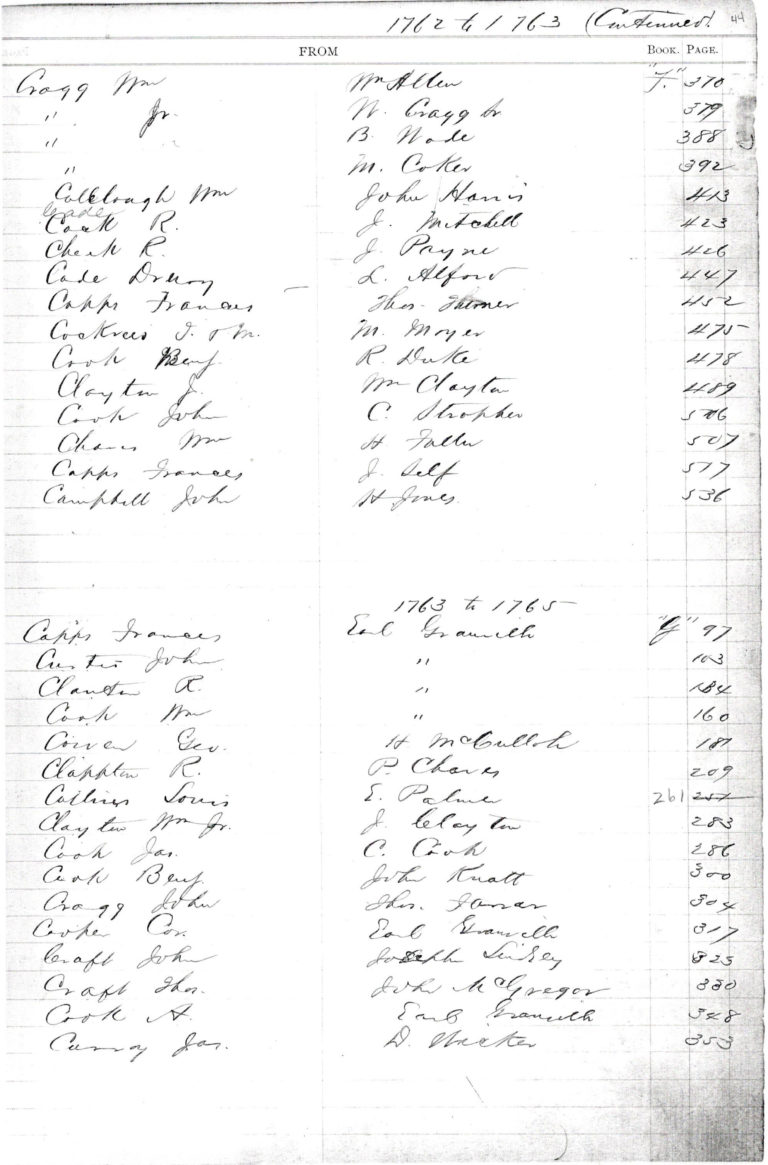 1762 to 1763 (Continued). 44
FROM BOOK. PAGE.
Cragg Wm Wm Allen "F." 370
" Jr. W. Cragg Sr 379
" B. Wade 388
" M. Coker 392
Colclough Wm John Harris 413
Cade
Cook R. J. Mitchell 423
Cheek R. J. Payne 426
Cade Drury L. Alford 447
Capps Frances Thos. Turner 452
M. Moyer 475
Cook Benj. R. Duke 478
Clayton J. Wm Clayton 489
Cook John C. Strother 506
Chaves Wm H Fuller 507
Capps Frances J. Self 517
Campbell John H Jones. 536
1763 to 1765
Capps Frances Earl Granville "G" 97
Curtis John " 103
Clanton R. " 184
Cook Wm " 160
Cowen Geo. H McCulloh 181
Clappton R. P. Chaves 209
Collins Louis E. Palmer 261 251
Clayton Wm Jr. J. Clayton 283
Cook Jas. C. Cook 286
Cook Benj. John Knott 300
Cragg John Thos. Farrar 304
Cooper Cor. Earl Granville 317
Craft John Joseph Lindsey 325
Craft Thos. John McGregor 330
Cook A. Earl Granville 348
Curry Jas. D. Wicker 353